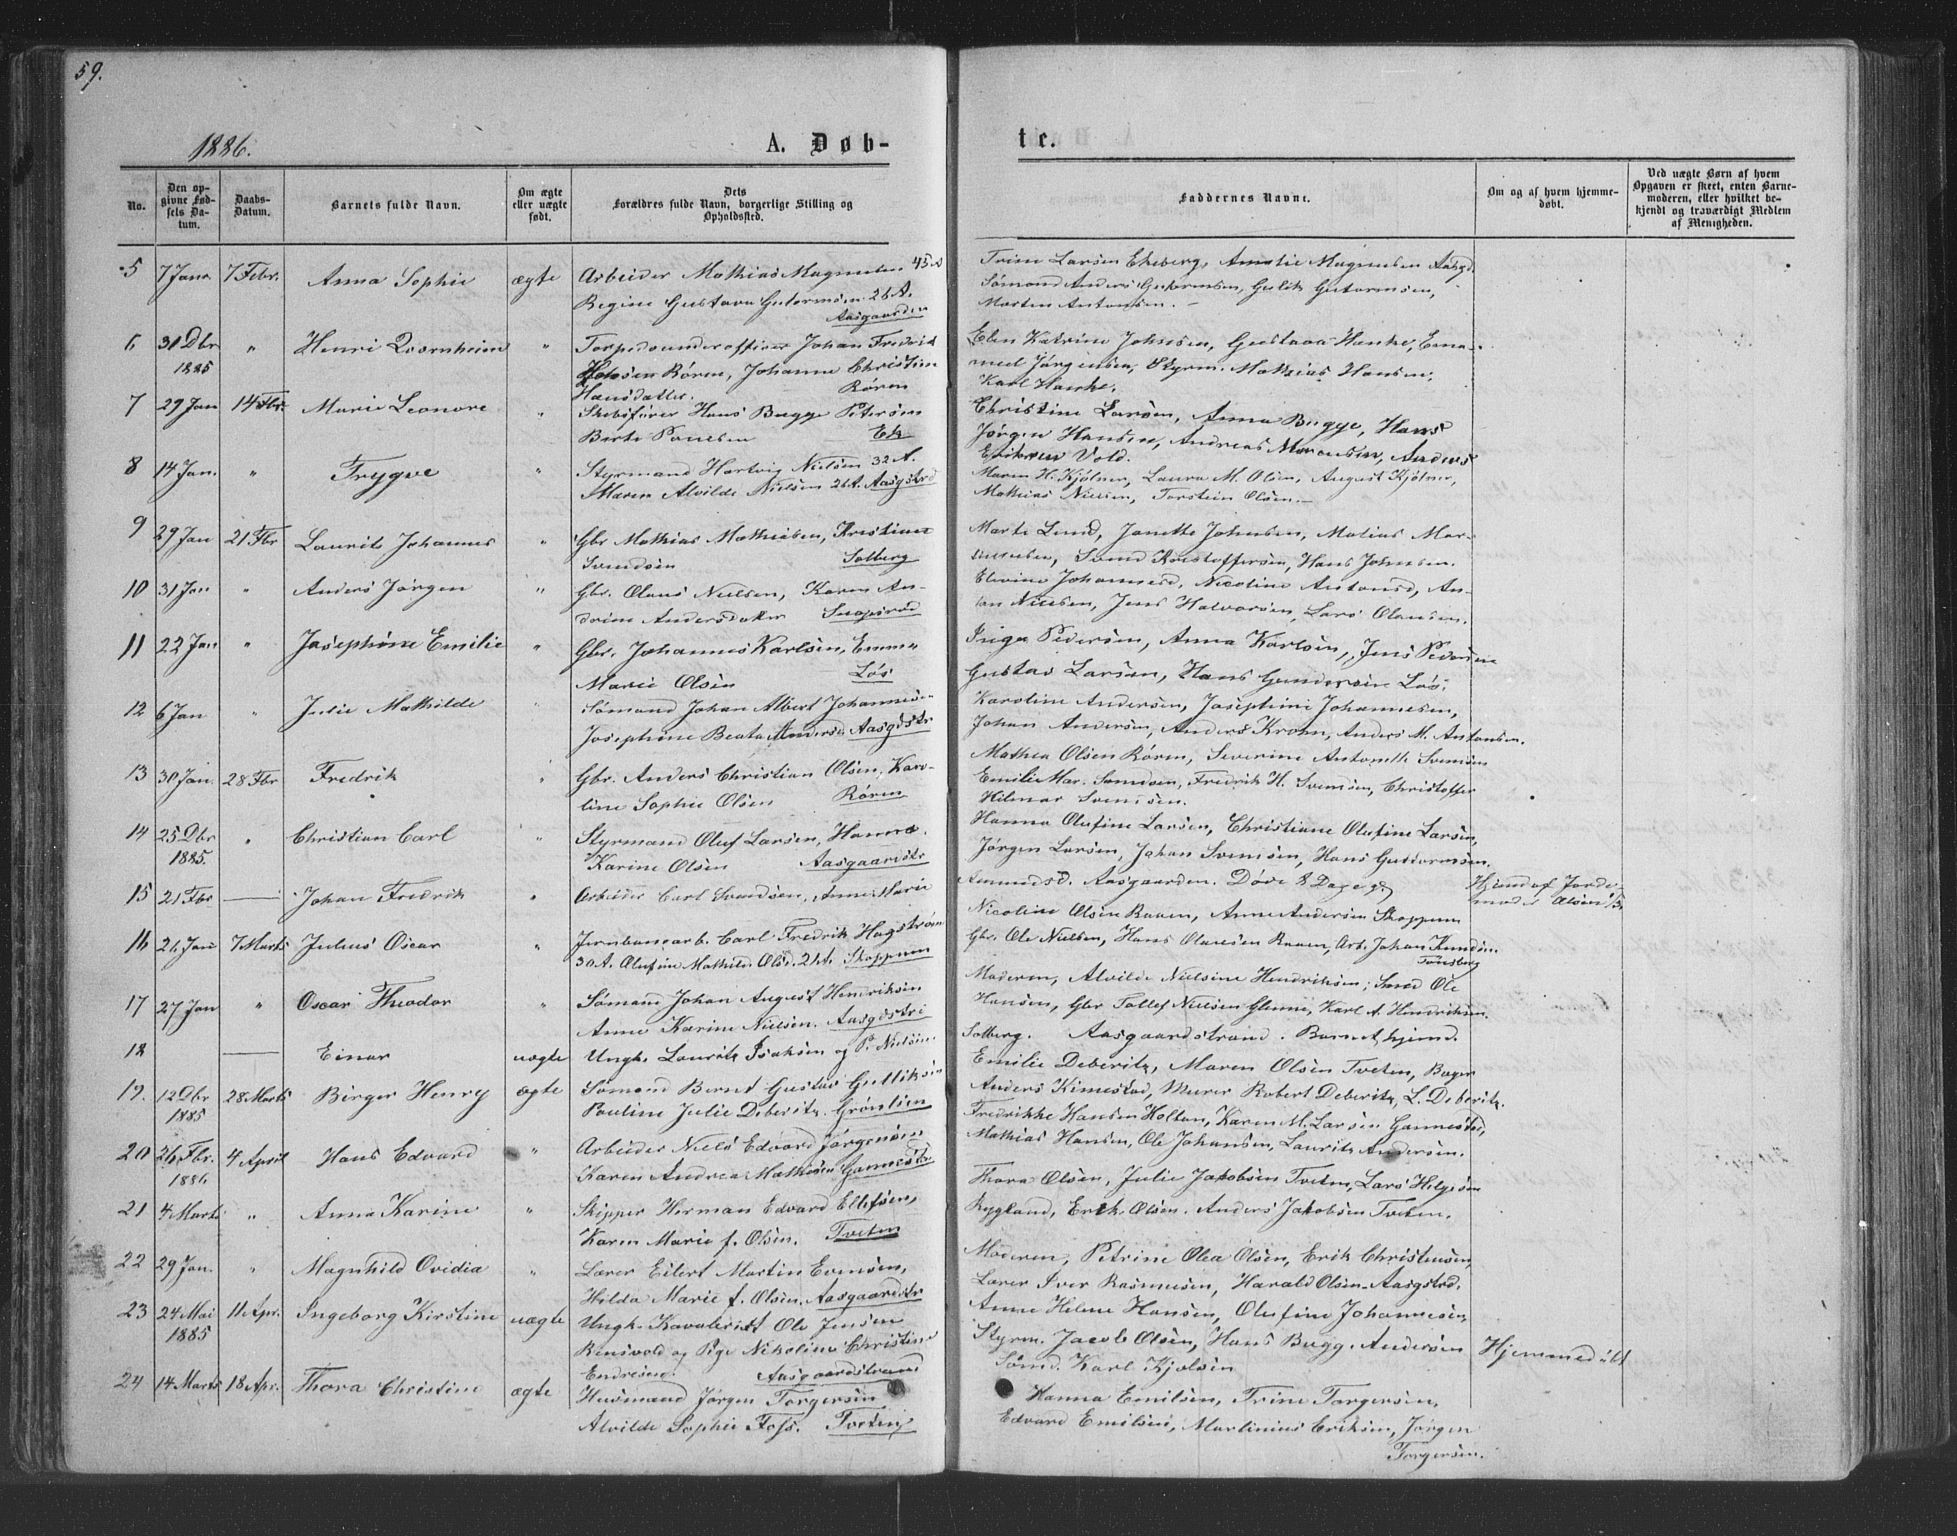 59.
1886.
A. Døb-
te.
No.
Den op-
givne Fød-
sels Da-
tum.
Daabs-
Datum.
Barnets fulde Navn.
Om ægte
eller uægte
født.
Dets
Forældres fulde Navn, borgerlige Stilling og
Opholdssted.
Faddernes Navne.
Om og af hvem hjemme-
døbt.
Ved uægte Børn af hvem
Opgaven er skeet, enten Barne-
moderen, eller hvilket be-
kjendt og troværdigt Medlem
af Menigheden.
5 7 Janr 7 Febr. Anna Sophie ægte Arbeider Mathias Magnusen 45
Regine Gustava Gutormsen 26 A.
Aasgaarden
Trine Larsen Ekeberg, Amalie Magnusen Aasgd.
Sømand Anders Gutormsen, Gulik Gutormsen,
Martin Antonsen.
6 30 Dbr " Henri Rosenheim " Torpedounderofficer Johan Fredrik
1885 Hansen Røren, Johanne Christine
Hansdatter. Røren
Elen Katrine Johnsen, Gustava Hanke, Ema-
nuel Jørgensen, Styrm. Mathias Hansen,
Karl Hanke.
7 29 Jan 14 Fbr. Marie Leonore " Skibsfører Hans Bugge Petersen
Berte Paulsen Ek
Christine Larsen, Anna Bugge, Hans
Jørgen Hansen, Andreas Marensin, Anders
Eriksen Vold.
8 14 Jan. " Trygve " Styrmand Hartvig Nielsen 32 A.
Maren Alvilde Nielsen 26 A. Aasgstrd
Maren H. Kjølner, Laura M. Olsen, August Kjølner,
Mathias Nielsen, Torstein Olsen.
9 29 Jan 21 Fbr Laurits Johannes " Gbr Mathias Mathisen, Kristiane
Svendsen Solberg
Marte Lund, Janette Johnsen, Matias Mar-
Svend Kristoffersen, Hans Johnsen.
10 31 Jan " Anders Jørgen " Gbr. Olaus Nielsen, Karen An-
drine Andersdatter Snopsrød
Elevine Johannesd, Nicoline Antonsd, An-
ton Nielsen, Jens Halvorsen, Lars Olausen.
11 22 Jan " Josephine Emilie " Gbr. Johannes Karlsen, Emma
Marie Olsen Løs
Inga Pedersen, Anna Karlsen, Jens Pedersen
Gustav Larsen, Hans Gundersen Løs.
12 6 Jan " Julie Mathilde " Sømand Johan Albert Johannesen
Josephine Beata Anders. Aasgdstr
Karoline Andersen, Josephine Johannesen,
Johan Andersen, Anders Krom, Anders M. Antonsen.
13 30 Jan. 28 Fbr Fredrik " Gbr. Anders Christian Olsen, Karo-
line Sophie Olsen Røren
Mathea Olsen Røren, Severine Antonette Svensen
Emilie Mar. Svendsen, Fredrik H. Svensen, Christoffer
Hilmar Svensen.
14 25 Dbr " Christian Carl " Styrmand Oluf Larsen, Hanna
1885. Karine Olsen Aasgaardstr
Hanna Olufine Larsen, Christiane Olufine Larsen,
Jørgen Larsen, Johan Svensen, Hans Guttormsen.
15 21 Fbr — Johan Fredrik " Arbeider Carl Svendsen, Anne Marie
Amundsd. Aasgaarden. Døde 8 Dage gl.
Hjemd af Jorde-
mod. Olsen
16 26 Jan 7 Marts Julius Oscar " Jernbanearb. Carl Fredrik Hagstrøm
30 A. Olufine Mathild. Olsd. 21 A. Skoppum
Nicoline Olsen Raaen, Anne Andersen Skoppum
Gbr. Ole Nielsen, Hans Olausen Raaen, Arb. Johan Knudsen
Tønsberg
17 27 Jan " Oscar Theodor " Sømand Johan August Hendriksen
Anne Karine Nielsen. Aasgdstr
Moderen, Alvilde Nielsine Hendriksen; Sømd Ole
Hansen, Gbr Tollef Nielsen Glenne, Karl A. Hendriksen.
18 — Einar uægte Ungk. Lauritz Isaksen og P. Nielsen
Solberg. Aasgaardstrand. Barnet hjemd.
19. 12 Dbr 28 Marts Birger Henry ægte Sømand Bernt Gustav Gulliksen
1885 Pauline Julie Deberitz. Grønlien
Emilie Deberitz, Maren Olsen Tveten, Bager
Anders Kimestad, Murer Robert Deberitz, L. Deberitz.
20 26 Fbr. 4 April Hans Edvard " Arbeider Niels Edvard Jørgensen
1886 Karen Andrea Mathisen Gannestd
Fredrikke Hansen Holtan, Karen M. Larsen Gannestad,
Mathias Hansen, Ole Johansen, Lauritz Andersen.
21 4 Marts " Anna Karine " Skipper Herman Edvard Ellefsen,
Karen Marie f. Olsen. Tveten
Thora Olsen, Julie Jakobsen Tveten, Lars Helgesen
Rygland, Erik Olsen. Anders Jakobsen Tveten.
22 29 Jan. " Magnhild Ovidia " Lærer Eilert Martin Evensen,
Hilda Marie f. Olsen. Aasgaardstr
Moderen, Petrine Olea Olsen, Erik Christensen,
Lærer Iver Rasmusen, Harald Olsen. Aasgstrd.
23 24 Mai 11 Apr. Ingeborg Kirstine uægte Ungk. Kavalerist Ole Jensen
1885 Rensvold og Pige Nikoline Christine
Endresen. Aasgaardstrand
Anne Helene Hansen, Olufine Johannesen,
Styrm. Jacob Olsen, Hans Bugg. Andersen
Sømd. Karl Kjølsen
Hjemmedøbt
24 14 Marts 18 Apr. Thora Christine ægte Husmand Jørgen Torgersen
Alvilde Sophie Foss. Tveten
Hanna Emilsen, Trine Torgersen,
Edvard Emilsen, Martinius Eriksen, Jørgen
Torgersen.